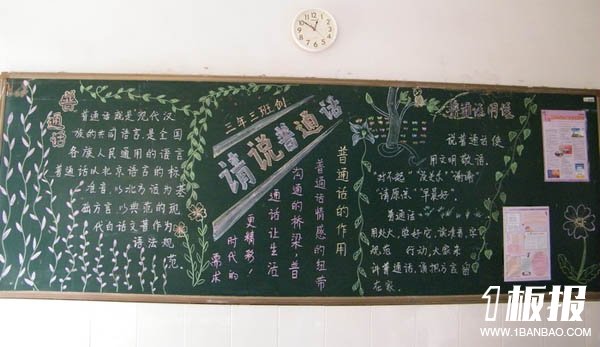 普通话
普通话就是现代汉
族的共同语言，是全国
各族人民通用的语言
普通话以北京语言的标
准音，以北方话为基
础方言，以典范的现
代白话文著作为
语法规
范。
三年三班创
请说普通话
普通话的作用
普通话情感的纽带
沟通的桥梁 普
通话让生活
更精彩！
时代的
要求
说普通话使
用文明敬语。
“对不起”“没关系”“谢谢”
“请原谅”“早晨好”。
普通话
行动，大家来
讲普通话，请把方言留
在家。
1板报
WWW.1BANBAO.COM